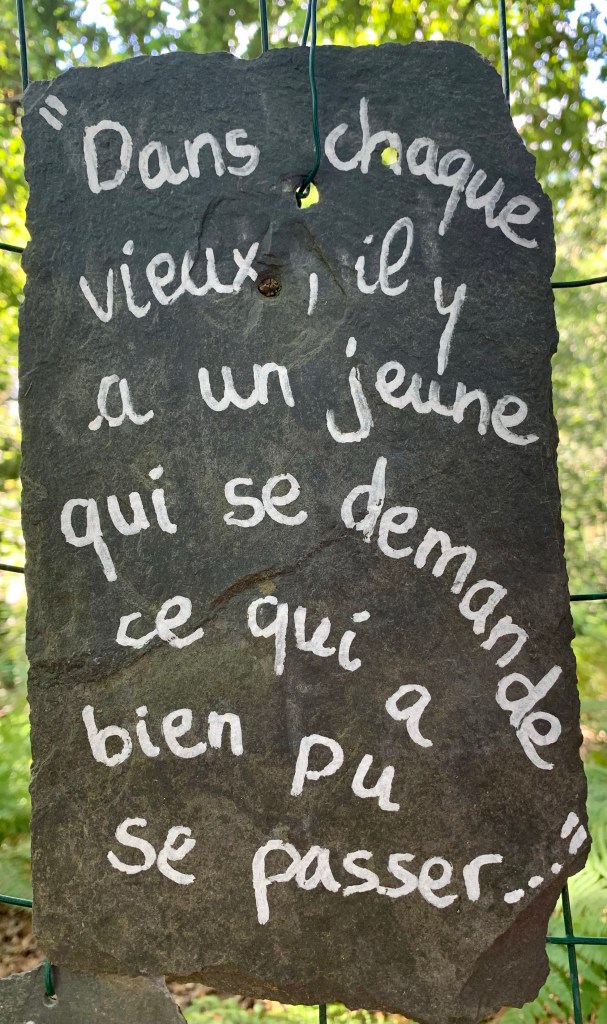 "Dans chaque
vieux, il y
a un jeune
qui se demande
ce qui a
bien pu
se passer..."